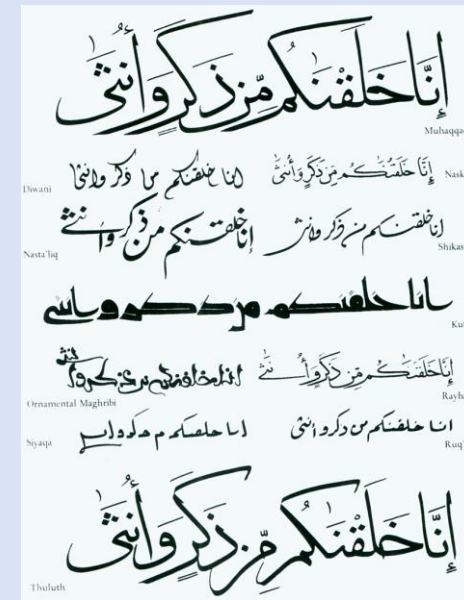 إِنَّا خَلَقْنَٰكُم مِّن ذَكَرٍ وَأُنثَىٰ
Muhaqqa
إِنَّا خَلَقْنَٰكُم مِّن ذَكَرٍ وَأُنثَىٰ
Nask
انا خلقنكم من ذكر وانثى
Diwani
انا خلقنكم من ذكر وانثى
Shikas
إنا خلقنكم من ذكر وأنثى
Nasta'liq
انا خلقنكم من ذكر وانثى
Ku
إِنَّا خَلَقْنَٰكُم مِّن ذَكَرٍ وَأُنثَىٰ
Rayh
انا خلقنكم من ذكر وأنثى
Ornamental Maghribi
انا خلقنكم من ذكر وأنثى
Ruq'
Siyaqa
إِنَّا خَلَقْنَٰكُم مِّن ذَكَرٍ وَأُنثَىٰ
Thuluth